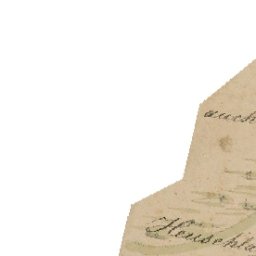 auch
Heuschla